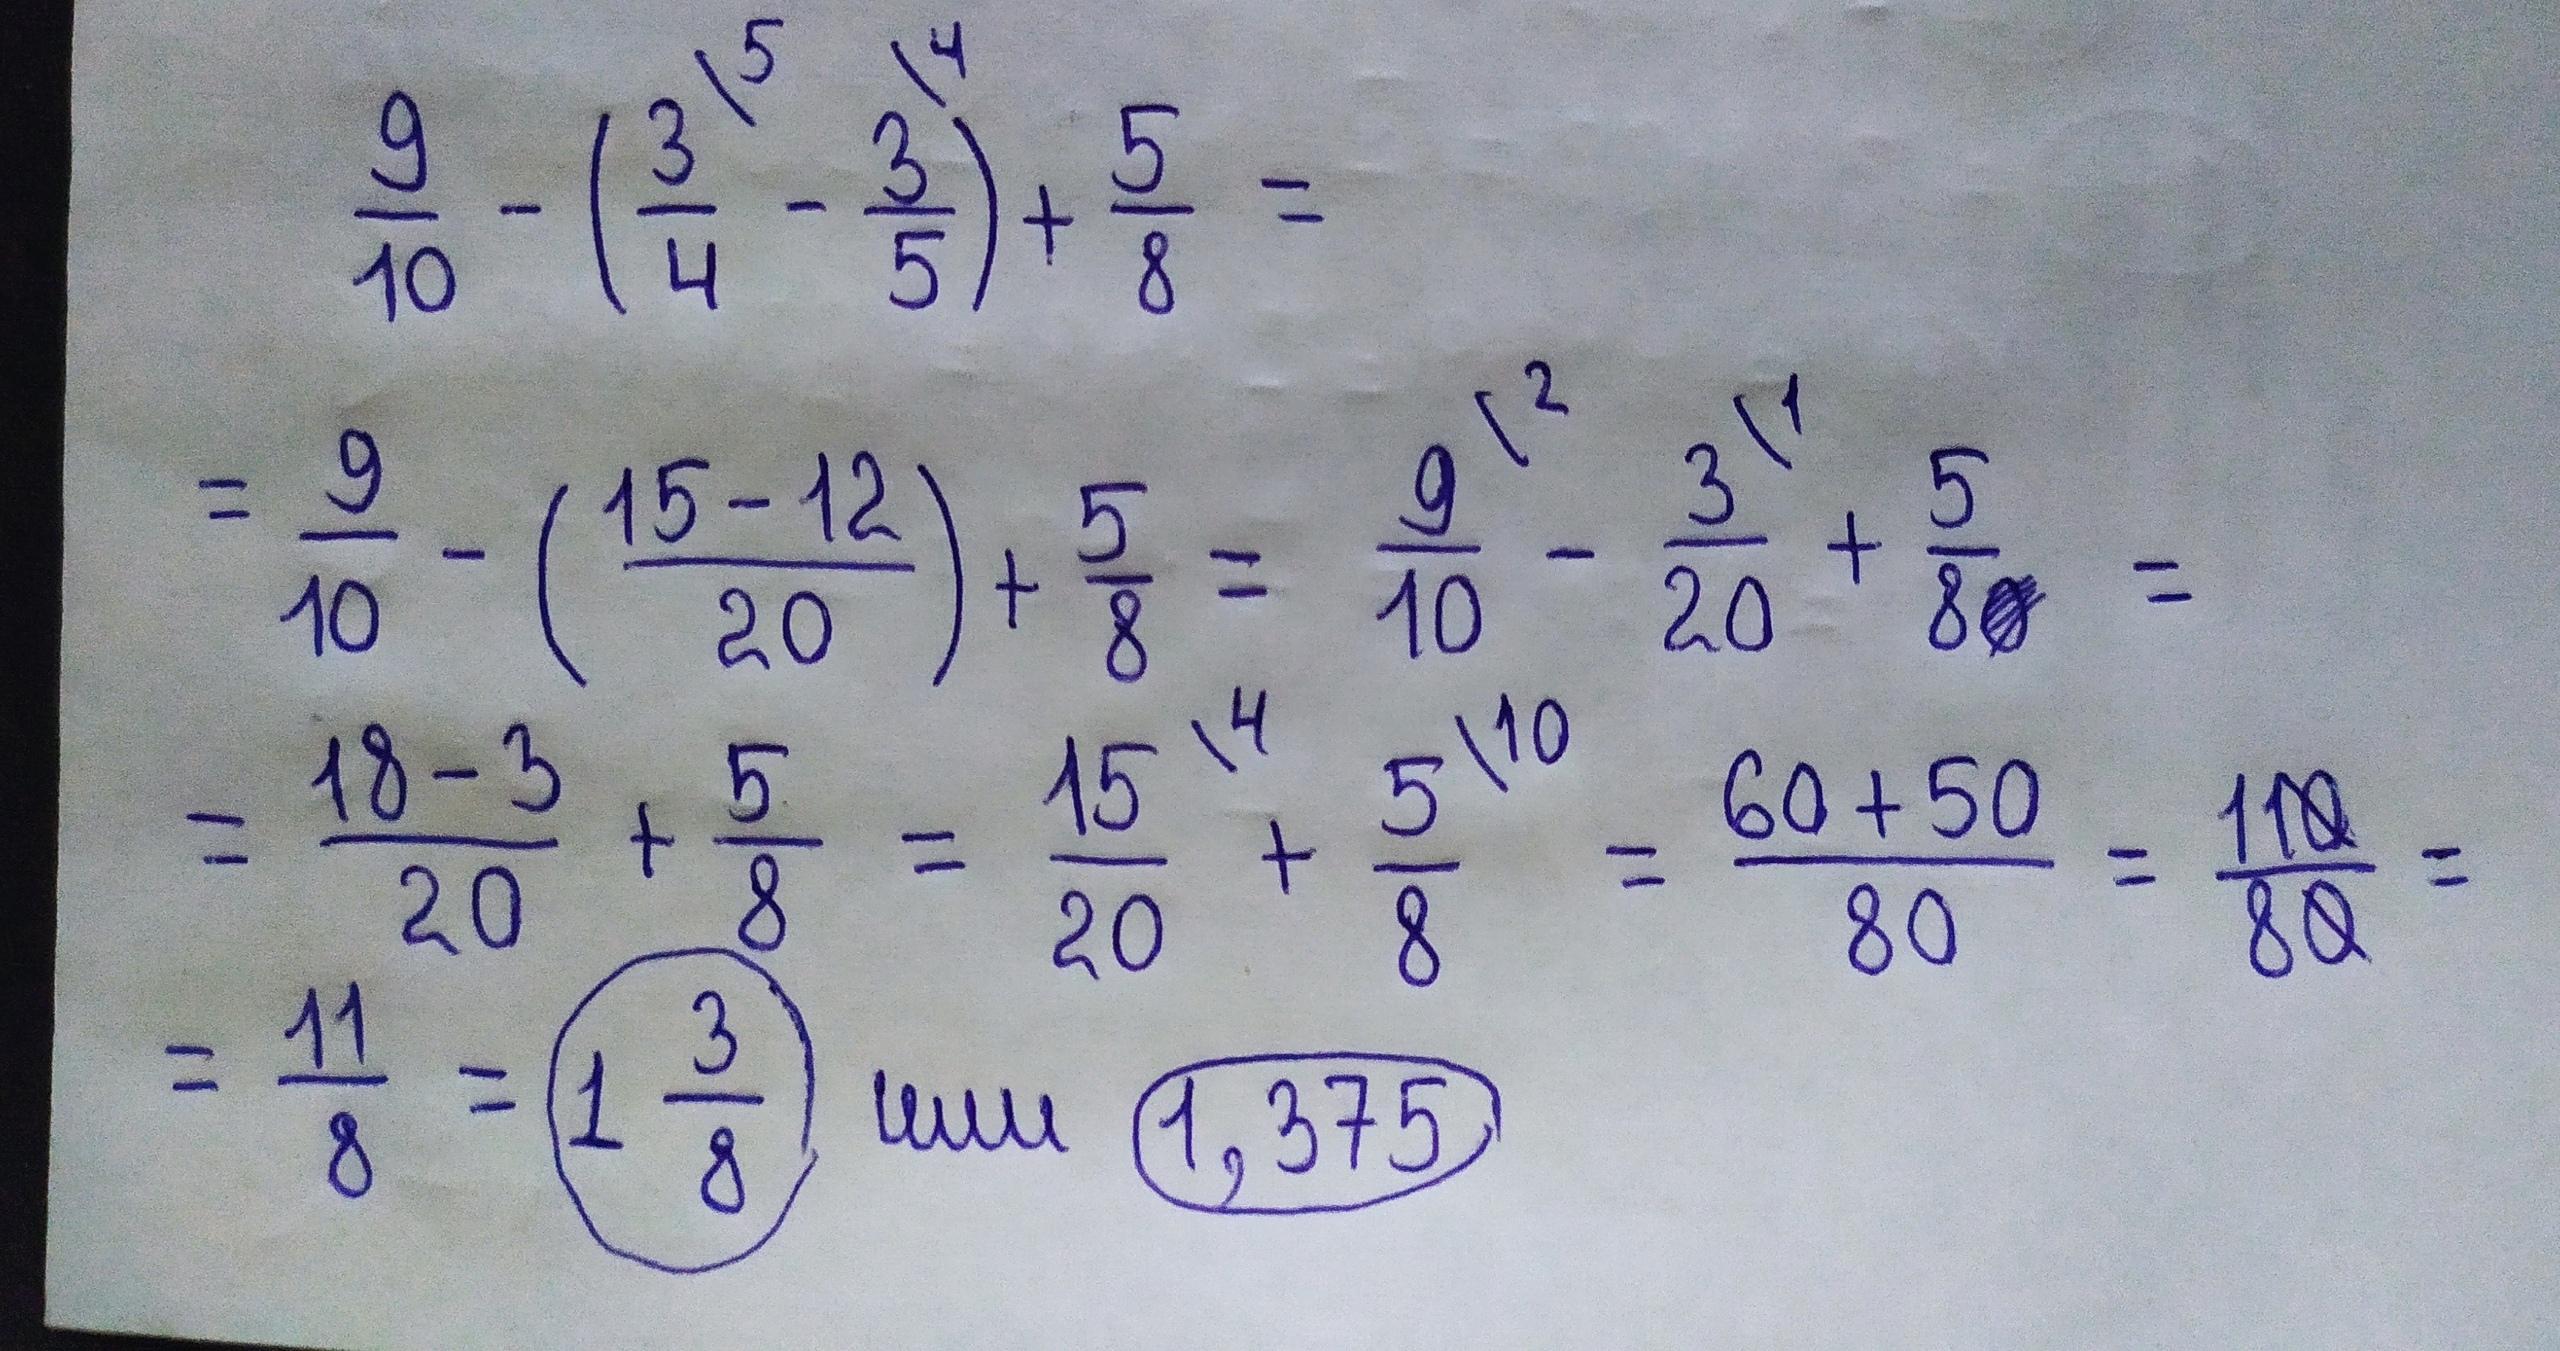 9/10 - (3/4 \5 - 3/5 \4) + 5/8 =
= 9/10 - (15-12/20) + 5/8 = 9/10 \2 - 3/20 \1 + 5/8 =
= 18-3/20 + 5/8 = 15/20 \4 + 5/8 \10 = 60+50/80 = 110/80 =
= 11/8 = 1 3/8 или 1,375